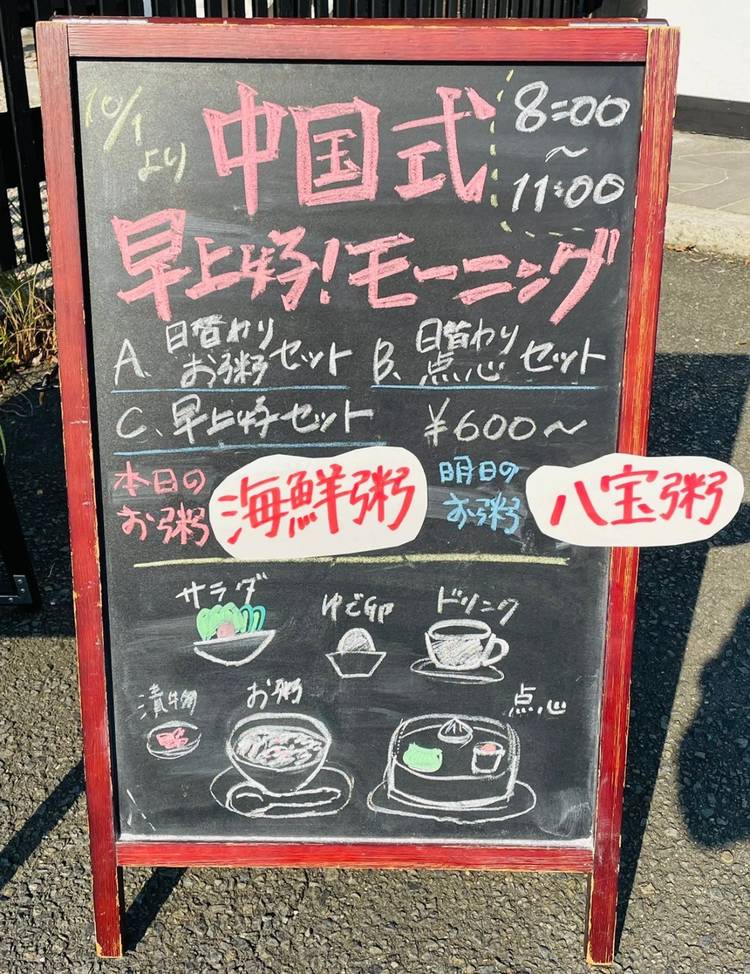 10/1より
中国式
8:00
～
11:00
早上好！モーニング
A. 日替わりお粥セット
B. 日替わり点心セット
C. 早上好セット ¥600～
本日のお粥 海鮮粥
明日のお粥 八宝粥
サラダ
ゆで卵
ドリンク
漬物
お粥
点心